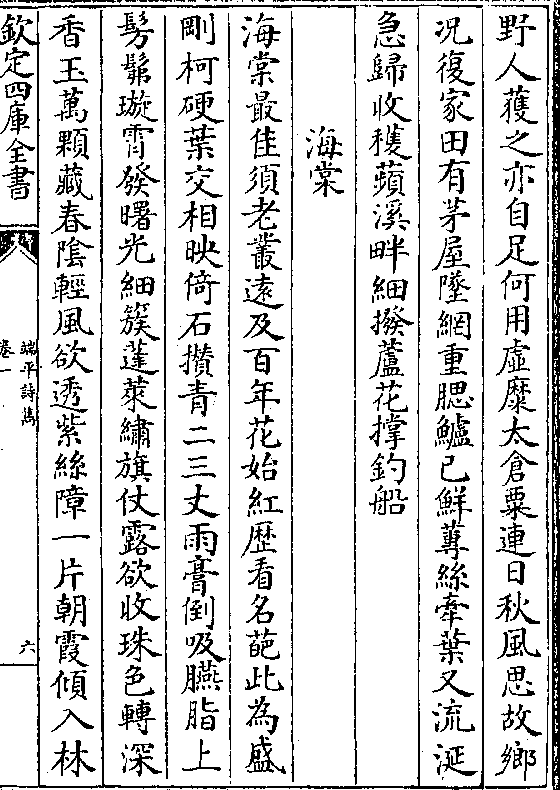 野人蒦之亦自足何用虛糜太倉粟連日秋風思故鄉
况復家田有茅屋墜網重腮鱸已鮮蓴絲牽葉又流涎
急歸收穫蘋溪畔細撥蘆花撑釣船
海棠
海棠最佳須老叢遠及百年花始紅歴看名葩此為盛
剛柯硬葉交相映倚石攅青二三丈雨膏倒吸臙脂上
髣髴璇霄發曙光細簇蓬萊繡旗仗露欲收珠色轉深
香玉萬顆藏春陰輕風欲透紫絲障一片朝霞傾入林
欽定四庫全書
端平詩雋
卷一
六